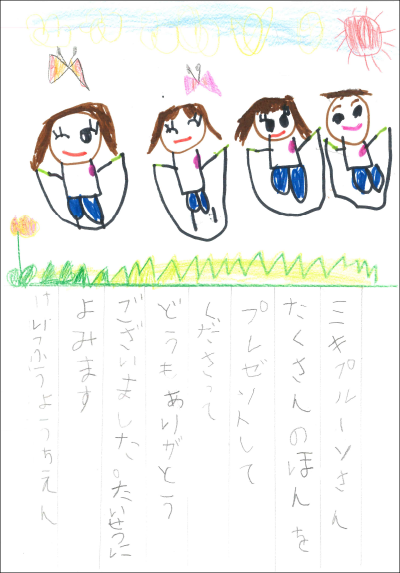 ミキプルーンさん
たくさんのほんを
プレゼントして
くださって
どうもありがとう
ございました。たいせつに
よみます
ようちえん